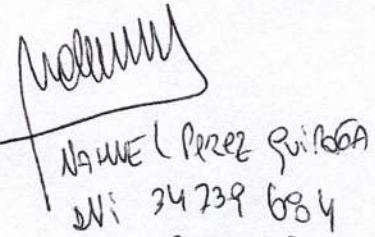 NAHUEL PEREZ QUIROGA
DNI 34 739 684